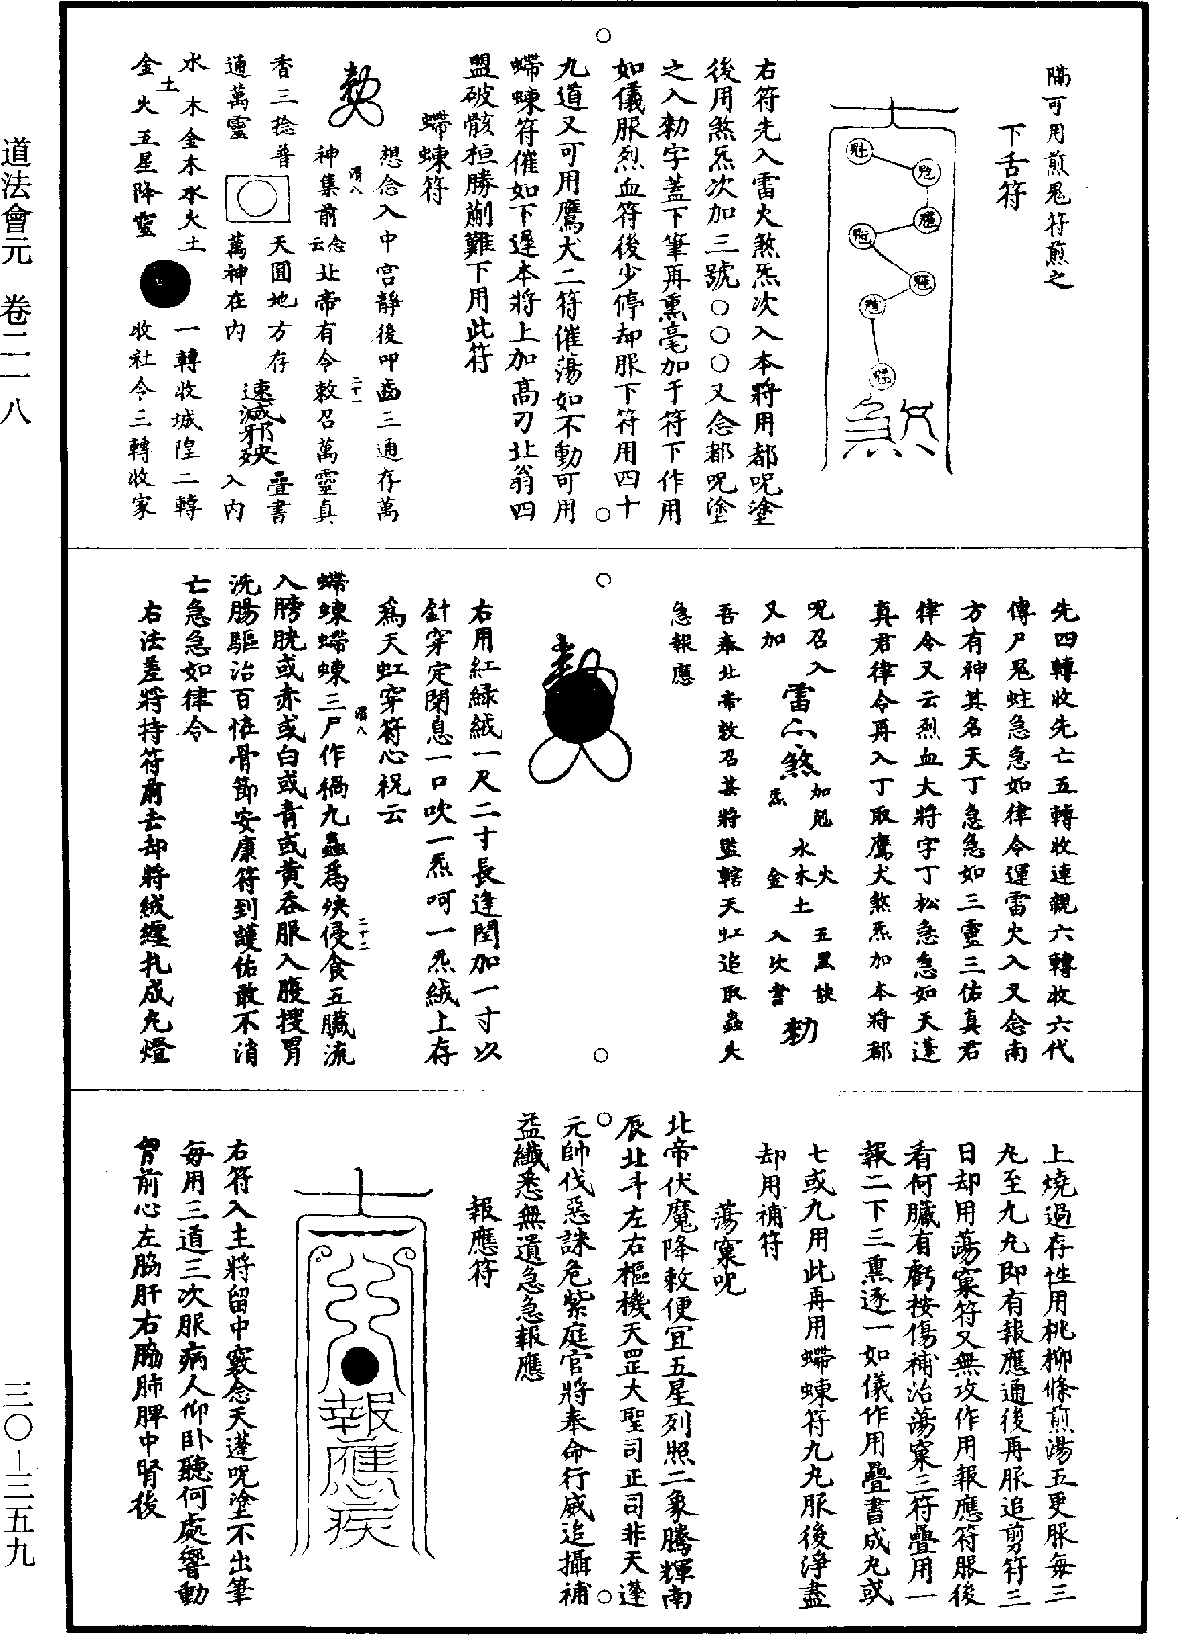 隔可用煎鬼符煎之
下舌符
魁
䰢
𩲃
魓
煞
右符先入雷火煞炁次入本將用都呪塗
後用煞炁次加三號○○○又念都呪塗
之入勑字蓋下筆再熏毫加于符下作用
如儀服烈血符後少停却服下符用四十
九道又可用鷹犬二符催蕩如不動可用
蝃蝀符催如下遲本將上加高刁北翁四
盟破骸桓勝蒯難下用此符
蝃蝀符
想念入中宮靜後叩齒三通存萬
勑
神集前念云北帝有令敕召萬靈真
香三捻普
天圓地方存
疊書
通萬靈
萬神在内
速滅邪殃
入内
水木金木水火土
一轉收城隍二轉
土
金火五星降靈
收社令三轉收家
先四轉收先亡五轉收連親六轉收六代
傳尸鬼蛀急急如律令運雷火入又念南
方有神其名天丁急急如三靈三佑真君
律令又云烈血大將字丁松急急如天蓬
真君律令再入丁取鷹犬煞炁加本將都
呪召入
雷火煞
加鬼
水
火
木土
五星訣
又加
炁
金
入次書
勑
吾奉北帝敕召某將監轄天虹追取蟲火
急報應
勑
右用紅緑絨一尺二寸長逢閏加一寸以
針穿定閉息一口吹一炁呵一炁絨上存
爲天虹穿符心祝云
蝃蝀蝃蝀三尸作禍九蟲爲殃侵食五臟流
入膀胱或赤或白或青或黄吞服入腹搜胃
洗腸驅治百怪骨節安康符到護佑敢不消
亡急急如律令
右法差將持符前去却將絨纏札成丸燈
上燒過存性用桃柳條煎湯五更服每三
丸至九九丸即有報應通後再服追剪符三
日却用蕩窠符又無攻作用報應符服後
看何臟有虧按傷補治蕩窠三符疊用一
報二下三熏逐一如儀作用疊書成丸或
七或九用此再用蝃蝀符九九服後淨盡
却用補符
蕩窠呪
北帝伏魔降敕便宜五星列照二象騰輝南
辰北斗左右樞機天罡大聖司正司非天蓬
元帥伐惡誅危紫庭官將奉命行威追攝補
益纖悉無遺急急報應
報應符
報應疾
右符入主將留中竅念天蓬呪塗不出筆
每用三道三次服病人仰卧聽何處響動
胷前心左脇肝右脇肺脾中腎後
道法會元　卷二一八
三〇—三五九